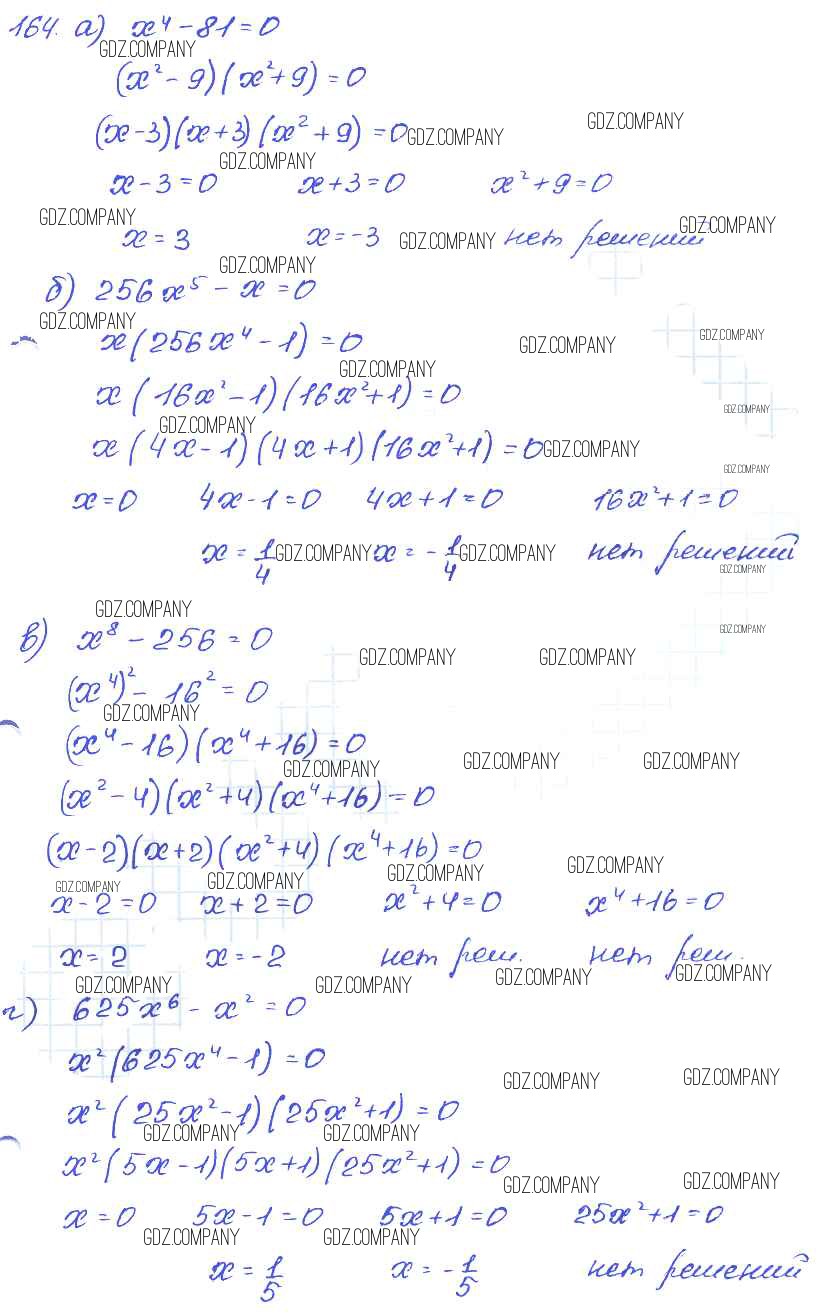 164. а) x⁴ - 81 = 0
GDZ.COMPANY
(x² - 9)(x² + 9) = 0
GDZ.COMPANY
(x - 3)(x + 3)(x² + 9) = 0 GDZ.COMPANY
GDZ.COMPANY
x - 3 = 0 x + 3 = 0 x² + 9 = 0
GDZ.COMPANY GDZ.COMPANY
x = 3 x = -3 GDZ.COMPANY нет решений
GDZ.COMPANY
б) 256x⁵ - x = 0
GDZ.COMPANY GDZ.COMPANY
x(256x⁴ - 1) = 0 GDZ.COMPANY
GDZ.COMPANY
x(16x² - 1)(16x² + 1) = 0
GDZ.COMPANY
GDZ.COMPANY
x(4x - 1)(4x + 1)(16x² + 1) = 0 GDZ.COMPANY
GDZ.COMPANY
x = 0 4x - 1 = 0 4x + 1 = 0 16x² + 1 = 0
x = 1/4 GDZ.COMPANY x = -1/4 GDZ.COMPANY нет решений
GDZ.COMPANY
GDZ.COMPANY
GDZ.COMPANY
в) x⁸ - 256 = 0
GDZ.COMPANY GDZ.COMPANY
(x⁴)² - 16² = 0
GDZ.COMPANY
(x⁴ - 16)(x⁴ + 16) = 0
GDZ.COMPANY GDZ.COMPANY GDZ.COMPANY
(x² - 4)(x² + 4)(x⁴ + 16) = 0
(x - 2)(x + 2)(x² + 4)(x⁴ + 16) = 0
GDZ.COMPANY GDZ.COMPANY GDZ.COMPANY GDZ.COMPANY
x - 2 = 0 x + 2 = 0 x² + 4 = 0 x⁴ + 16 = 0
x = 2 x = -2 нет реш. нет реш.
GDZ.COMPANY GDZ.COMPANY GDZ.COMPANY GDZ.COMPANY
г) 625x⁶ - x² = 0
x²(625x⁴ - 1) = 0
GDZ.COMPANY GDZ.COMPANY
x²(25x² - 1)(25x² + 1) = 0
GDZ.COMPANY GDZ.COMPANY
x²(5x - 1)(5x + 1)(25x² + 1) = 0
GDZ.COMPANY GDZ.COMPANY
x = 0 5x - 1 = 0 5x + 1 = 0 25x² + 1 = 0
GDZ.COMPANY GDZ.COMPANY
x = 1/5 x = -1/5 нет решений